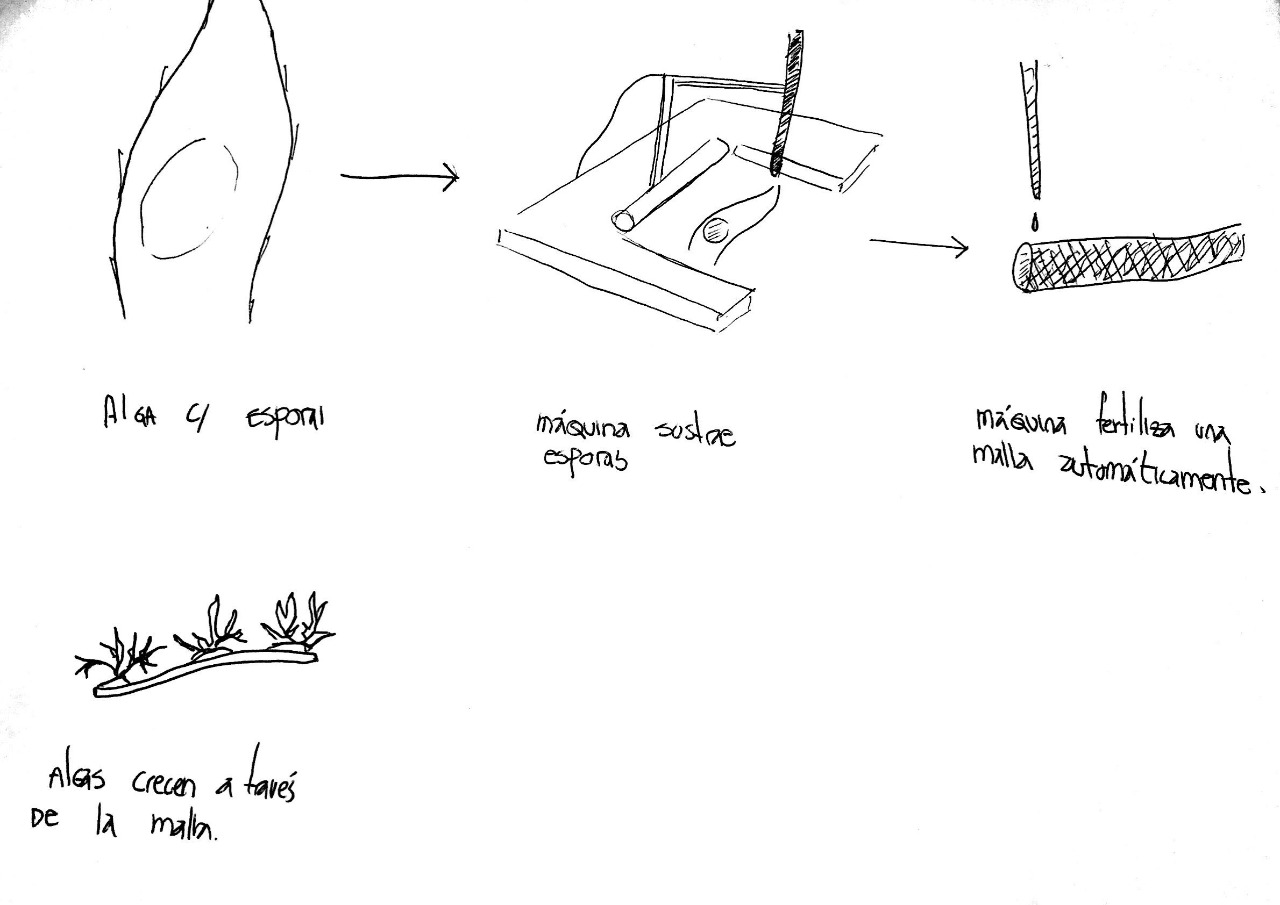 Alga c/ esporal
máquina sustrae
esporas
máquina fertiliza una
malla automáticamente.
Algas crecen a tavés
De la malla.